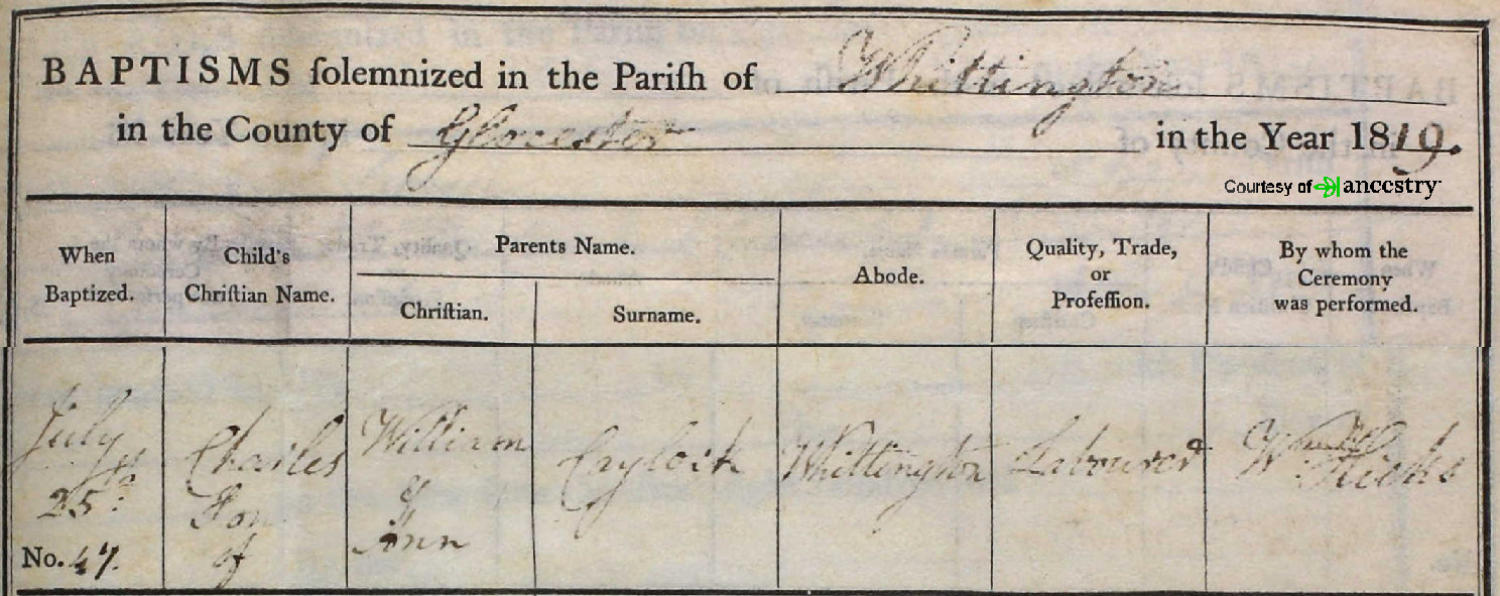 BAPTISMS ſolemnized in the Pariſh of Whittington
in the County of Glocester in the Year 1819.
Courtesy of ancestry
When Baptized.
Child's Chriſtian Name.
Parents Name.
Chriſtian.
Surname.
Abode.
Quality, Trade, or Profeſſion.
By whom the Ceremony was performed.
July 25th
No. 47.
Charles Son of
William & Ann
Caylock
Whittington
Labourer
Wm Hicks